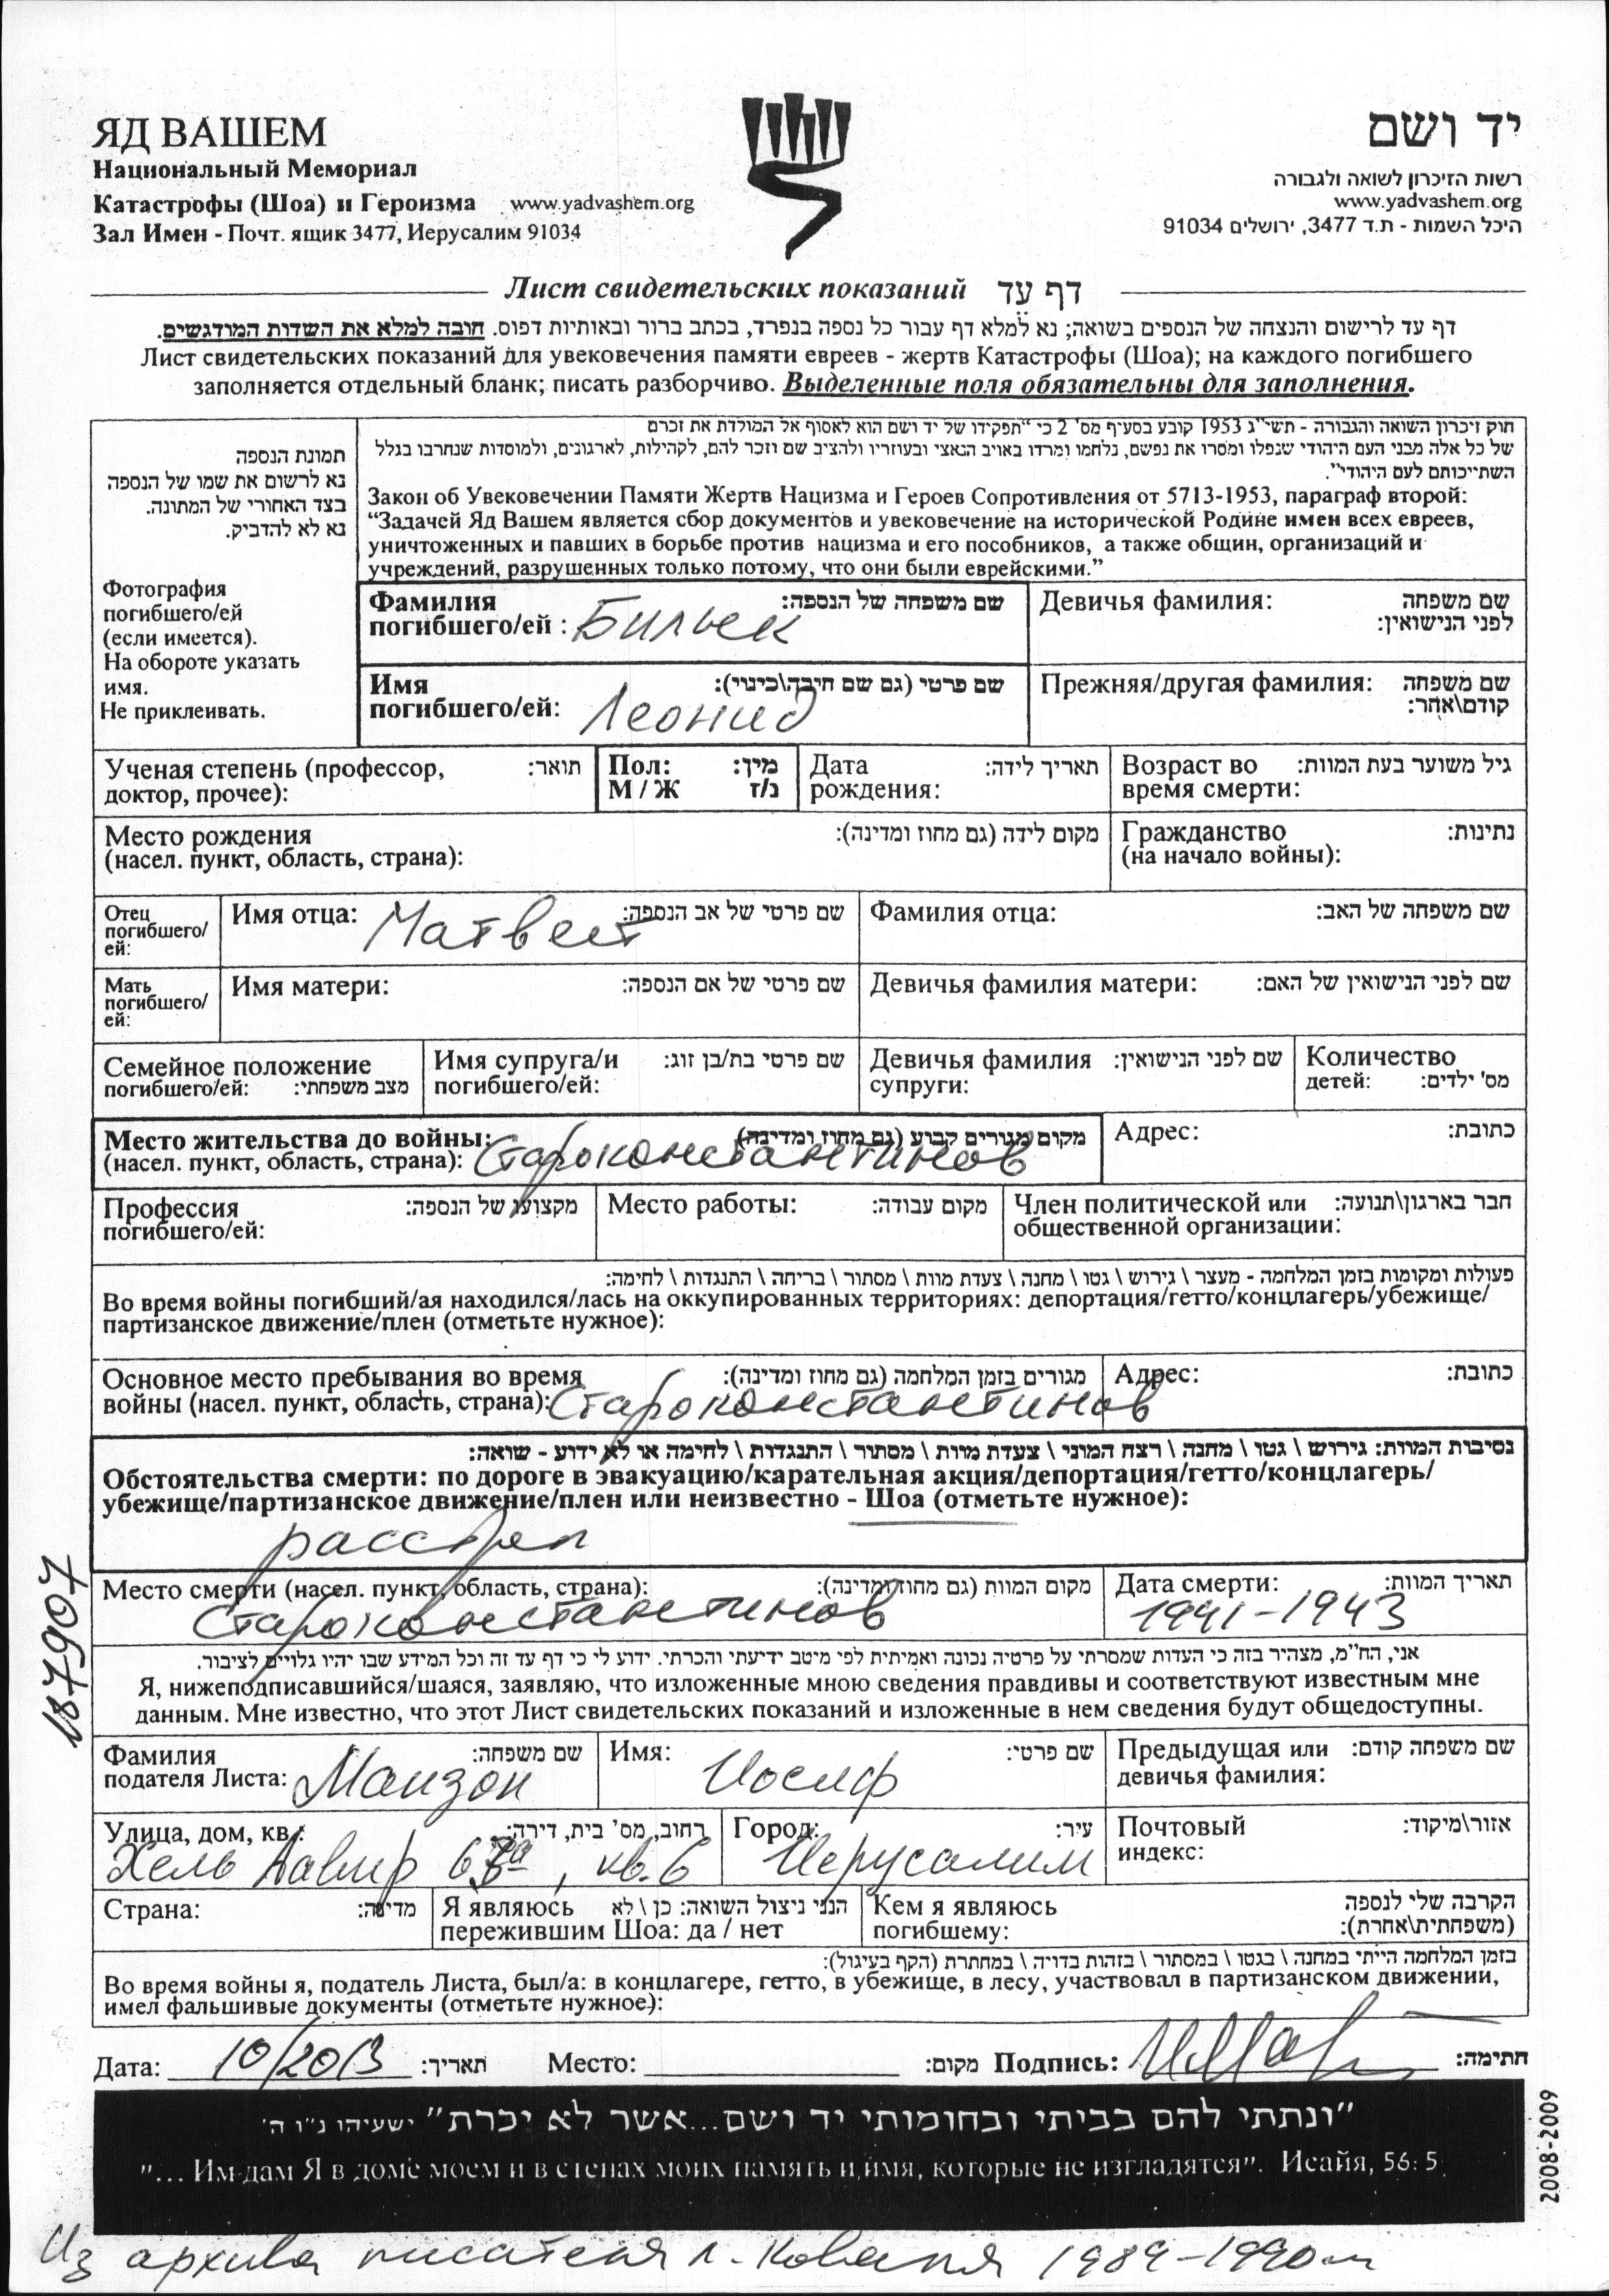 ЯД ВАШЕМ
Национальный Мемориал
Катастрофы (Шоа) и Героизма www.yadvashem.org
Зал Имен - Почт. ящик 3477, Иерусалим 91034
יד ושם
רשות הזיכרון לשואה ולגבורה
www.yadvashem.org
היכל השמות - ת.ד 3477, ירושלים 91034
Лист свидетельских показаний דף עד
דף עד לרישום והנצחה של הנספים בשואה; נא למלא דף עבור כל נספה בנפרד, בכתב ברור ובאותיות דפוס. חובה למלא את השדות המודגשים.
Лист свидетельских показаний для увековечения памяти евреев - жертв Катастрофы (Шоа); на каждого погибшего
заполняется отдельный бланк; писать разборчиво. Выделенные поля обязательны для заполнения.
תמונת הנספה
נא לרשום את שמו של הנספה
בצד האחורי של המתונה.
נא לא להדביק.
Фотография
погибшего/ей
(если имеется).
На обороте указать
имя.
Не приклеивать.
חוק זיכרון השואה והגבורה - תשי"ג 1953 קובע בסעיף מס' 2 כי "תפקידו של יד ושם הוא לאסוף אל המולדת את זכרם
של כל אלה מבני העם היהודי שנפלו ומסרו את נפשם, נלחמו ומרדו באויב הנאצי ובעוזריו ולהציב שם וזכר להם, לקהילות, לארגונים, ולמוסדות שנחרבו בגלל
השתייכותם לעם היהודי".
Закон об Увековечении Памяти Жертв Нацизма и Героев Сопротивления от 5713-1953, параграф второй:
“Задачей Яд Вашем является сбор документов и увековечение на исторической Родине имен всех евреев,
уничтоженных и павших в борьбе против нацизма и его пособников, а также общин, организаций и
учреждений, разрушенных только потому, что они были еврейскими.”
Фамилия שם משפחה של הנספה:
погибшего/ей : Бильек
Девичья фамилия: שם משפחה
לפני הנישואין:
Имя שם פרטי (גם שם חיבה\כינוי):
погибшего/ей: Леонид
Прежняя/другая фамилия: שם משפחה
קודם\אחר:
Ученая степень (профессор, תואר:
доктор, прочее):
Пол: מין:
М / Ж ז/נ
Дата תאריך לידה:
рождения:
Возраст во גיל משוער בעת המוות:
время смерти:
Место рождения מקום לידה (גם מחוז ומדינה):
(насел. пункт, область, страна):
Гражданство נתינות:
(на начало войны):
Отец
погибшего/
ей:
Имя отца: Матвей שם פרטי של אב הנספה:
Фамилия отца: שם משפחה של האב:
Мать
погибшего/
ей:
Имя матери: שם פרטי של אם הנספה:
Девичья фамилия матери: שם לפני הנישואין של האם:
Семейное положение
погибшего/ей: מצב משפחתי:
Имя супруга/и שם פרטי בת/בן זוג:
погибшего/ей:
Девичья фамилия שם לפני הנישואין:
супруги:
Количество
детей: מס' ילדים:
Место жительства до войны: מקום מגורים קבוע (גם מחוז ומדינה)
(насел. пункт, область, страна): Староконстантинов
Адрес: כתובת:
Профессия מקצועו של הנספה:
погибшего/ей:
Место работы: מקום עבודה:
Член политической или חבר בארגון\תנועה:
общественной организации:
פעולות ומקומות בזמן המלחמה - מעצר \ גירוש \ גטו \ מחנה \ צעדת מוות \ מסתור \ בריחה \ התנגדות \ לחימה:
Во время войны погибший/ая находился/лась на оккупированных территориях: депортация/гетто/концлагерь/убежище/
партизанское движение/плен (отметьте нужное):
Основное место пребывания во время מגורים בזמן המלחמה (גם מחוז ומדינה):
войны (насел. пункт, область, страна): Староконстантинов
Адрес: כתובת:
נסיבות המוות: גירוש \ גטו \ מחנה \ רצח המוני \ צעדת מוות \ מסתור \ התנגדות \ לחימה או לא ידוע - שואה:
Обстоятельства смерти: по дороге в эвакуацию/карательная акция/депортация/гетто/концлагерь/
убежище/партизанское движение/плен или неизвестно - Шоа (отметьте нужное):
расстрел
Место смерти (насел. пункт, область, страна): מקום המוות (גם מחוז ומדינה):
Староконстантинов
Дата смерти: תאריך המוות:
1941-1943
187907
אני, הח"מ, מצהיר בזה כי העדות שמסרתי על פרטיה נכונה ואמיתית לפי מיטב ידיעתי והכרתי. ידוע לי כי דף עד זה וכל המידע שבו יהיו גלויים לציבור.
Я, нижеподписавшийся/шаяся, заявляю, что изложенные мною сведения правдивы и соответствуют известным мне
данным. Мне известно, что этот Лист свидетельских показаний и изложенные в нем сведения будут общедоступны.
Фамилия שם משפחה:
подателя Листа: Маизон
Имя: Иосиф שם פרטי:
Предыдущая или שם משפחה קודם:
девичья фамилия:
Улица, дом, кв.: רחוב, מס' בית, דירה:
Хель Аавир , кв. 6
Город: Иерусалим עיר:
Почтовый אזור\מיקוד:
индекс:
Страна: מדינה:
Я являюсь הנני ניצול השואה: כן \ לא
пережившим Шоа: да / нет
Кем я являюсь הקרבה שלי לנספה
погибшему: (משפחתית\אחרת):
בזמן המלחמה הייתי במחנה \ בגטו \ במסתור \ בזהות בדויה \ במחתרת (הקף בעיגול):
Во время войны я, податель Листа, был/а: в концлагере, гетто, в убежище, в лесу, участвовал в партизанском движении,
имел фальшивые документы (отметьте нужное):
Дата: 10/2013 תאריך: Место: מקום: Подпись: חתימה:
"ונתתי להם בביתי ובחומותי יד ושם...אשר לא יכרת" ישעיהו נ"ו ה'
"... Им дам Я в доме моем и в стенах моих память и имя, которые не изгладятся". Исайя, 56: 5
2008-2009
Из архива писателя Л. Коваля 1989-1990 гг